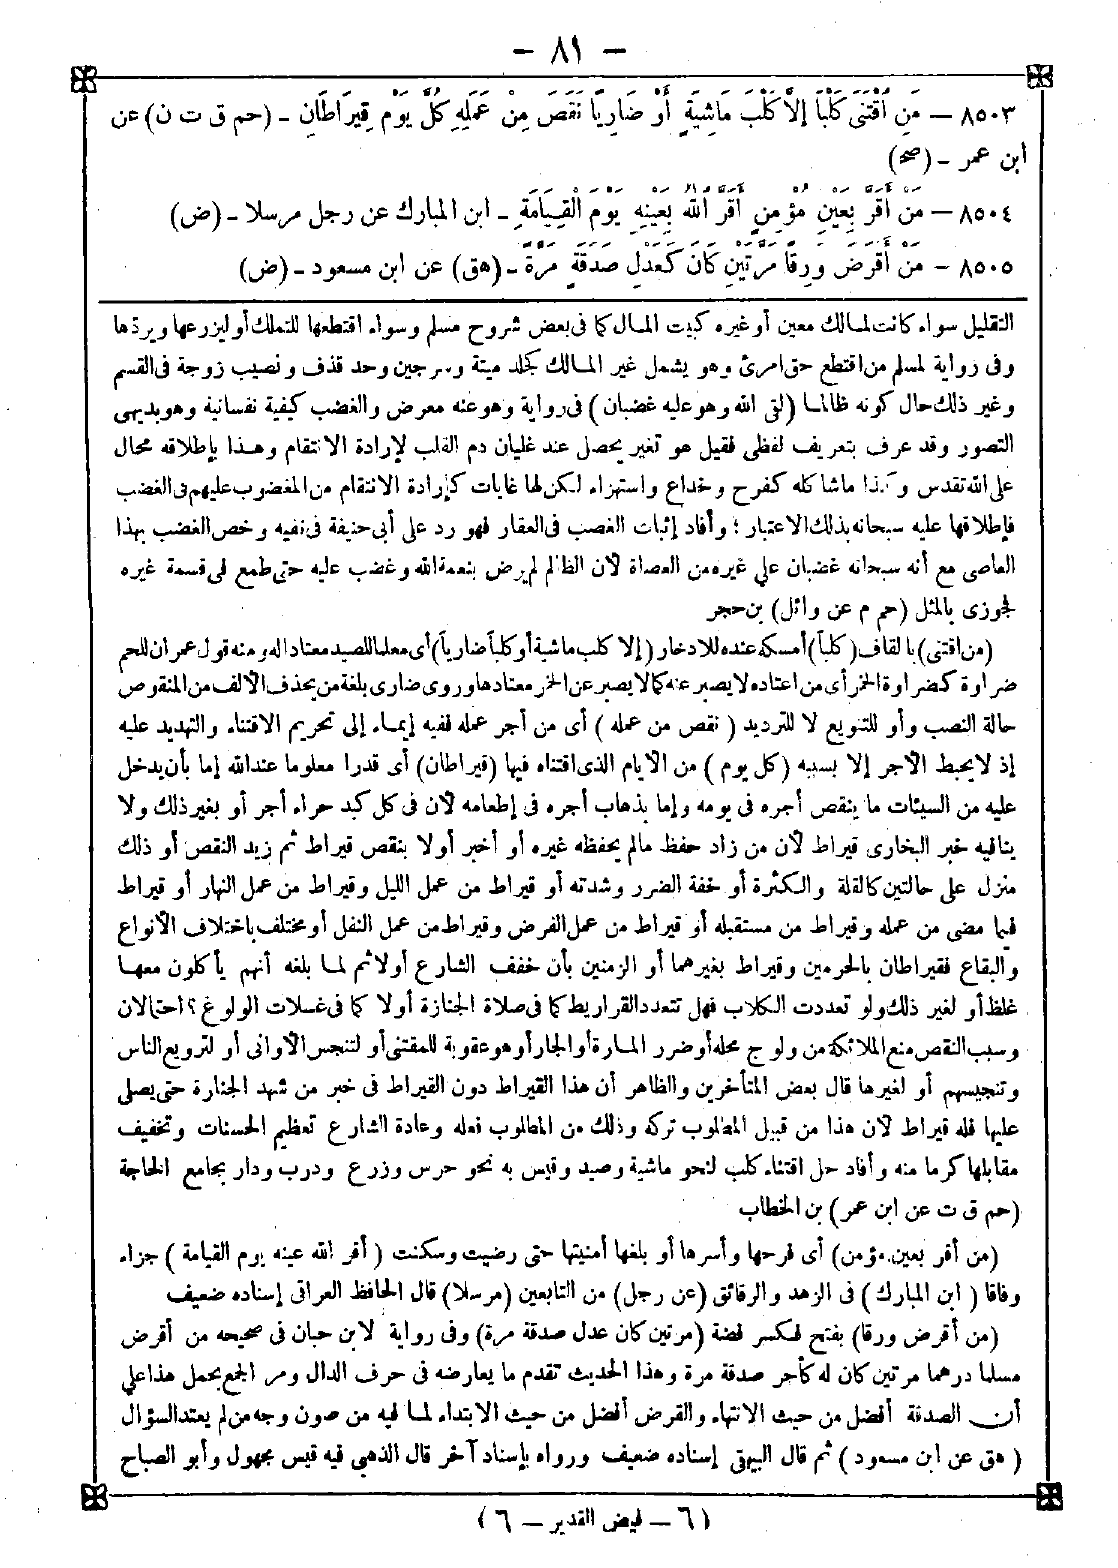 – ٨١ –
٨٥٠٣ – مَنِ اقْتَنَى كَلْبًا إِلَّا كَلْبَ مَاشِيَةٍ أَوْ ضَارِيًا نَقَصَ مِنْ عَمَلِهِ كُلَّ يَوْمٍ قِيرَاطَانِ – (حم ق ت ن) عن
ابن عمر – (صح)
٨٥٠٤ – مَنْ أَقَرَّ بِعَيْنِ مُؤْمِنٍ أَقَرَّ اللهُ بِعَيْنِهِ يَوْمَ الْقِيَامَةِ – ابن المبارك عن رجل مرسلا – (ض)
٨٥٠٥ – مَنْ أَقْرَضَ وَرِقًا مَرَّتَيْنِ كَانَ كَعَدْلِ صَدَقَةٍ مَرَّةً – (هق) عن ابن مسعود – (ض)
التقليل سواء كانت لمالك معين أو غيره كبيت المال كما فى بعض شروح مسلم وسواء اقتطعها للتملك أو ليزرعها ويردها
وفى رواية لمسلم من اقتطع حق امرئ وهو يشمل غير المالك كجلد ميتة وسرجين وحد قذف ونصيب زوجة فى القسم
وغير ذلك حال كونه ظالما (لقى الله وهو عليه غضبان) فى رواية وهو عنه معرض والغضب كيفية نفسانية وهو بديهى
التصور وقد عرف بتعريف لفظى فقيل هو تغير يحصل عند غليان دم القلب لإرادة الانتقام وهذا بإطلاقه محال
على الله تقدس وكذا ما شاكله كفرح وخداع واستهزاء لكن لها غايات كإرادة الانتقام من المغضوب عليهم فى الغضب
فإطلاقها عليه سبحانه بذلك الاعتبار ؛ وأفاد إثبات الغصب فى العقار فهو رد على أبى حنيفة فى نفيه وخص الغضب بهذا
العاصى مع أنه سبحانه غضبان على غيره من العصاة لأن الظالم لم يرض بنعمة الله وغضب عليه حتى طمع فى قسمة غيره
فجوزى بالمثل (حم م عن وائل) بن حجر
(من اقتنى) بالقاف (كلبا) أمسكه عنده للادخار (إلا كلب ماشية أو كلباً ضارياً) أى معلما للصيد معتادا له ومنه قول عمر إن للحم
ضراوة كضراوة الخمر أى من اعتاده لا يصبر عنه كما لا يصبر عن الخمر معتادها وروى ضارى بلغة من يحذف الألف من المنقوص
حالة النصب وأو للتنويع لا للترديد (نقص من عمله) أى من أجر عمله ففيه إيماء إلى تحريم الاقتناء والتهديد عليه
إذ لا يحبط الأجر إلا بسببه (كل يوم) من الأيام الذى اقتناه فيها (قيراطان) أى قدرا معلوما عند الله إما بأن يدخل
عليه من السيئات ما ينقص أجره فى يومه وإما بذهاب أجره فى إطعامه لأن فى كل كبد حراء أجر أو بغير ذلك ولا
ينافيه خبر البخارى قيراط لأن من زاد حفظ مالم يحفظه غيره أو أخبر أولا بنقص قيراط ثم زيد النقص أو ذلك
منزل على حالتين كالقلة والكثرة أو خفة الضرر وشدته أو قيراط من عمل الليل وقيراط من عمل النهار أو قيراط
فيما مضى من عمله وقيراط من مستقبله أو قيراط من عمل الفرض وقيراط من عمل النفل أو مختلف باختلاف الأنواع
والبقاع فقيراطان بالحرمين وقيراط بغيرهما أو الزمنين بأن خفف الشارع أولا ثم لما بلغه أنهم يأكلون معها
غلظ أو لغير ذلك ولو تعددت الكلاب فهل تتعدد القراريط كما فى صلاة الجنازة أولا كما فى غسلات الولوغ ؟ احتمالان
وسبب النقص منع الملائكة من ولوج محله أو ضرر المارة أو الجار أو هو عقوبة للمقتنى أو لتنجس الأوانى أو لترويع الناس
وتنجيسهم أو لغيرها قال بعض المتأخرين والظاهر أن هذا القيراط دون القيراط فى خبر من شهد الجنازة حتى يصلى
عليها فله قيراط لأن هذا من قبيل المطلوب تركه وذلك من المطلوب فعله وعادة الشارع تعظيم الحسنات وتخفيف
مقابلها كرما منه وأفاد حل اقتناء كلب لنحو ماشية وصيد وقيس به نحو حرس وزرع ودرب ودار بجامع الحاجة
(حم ق ت عن ابن عمر) بن الخطاب
(من أقر بعين مؤمن) أى فرحها وأسرها أو بلغها أمنيتها حتى رضيت وسكنت (أقر الله عينه يوم القيامة) جزاء
وفاقا (ابن المبارك) فى الزهد والرقائق (عن رجل) من التابعين (مرسلا) قال الحافظ العراقى إسناده ضعيف
(من أقرض ورقا) بفتح فكسر فضة (مرتين كان عدل صدقة مرة) وفى رواية لابن حبان فى صحيحه من أقرض
مسلما درهما مرتين كان له كأجر صدقة مرة وهذا الحديث تقدم ما يعارضه فى حرف الدال ومر الجمع بحمل هذا على
أن الصدقة أفضل من حيث الانتهاء والقرض أفضل من حيث الابتداء لما فيه من صون وجه من لم يعتد السؤال
(هق عن ابن مسعود) ثم قال البيهقى إسناده ضعيف ورواه بإسناد آخر قال الذهبى فيه قيس مجهول وأبو الصباح
(٦ – فيض القدير – ٦)